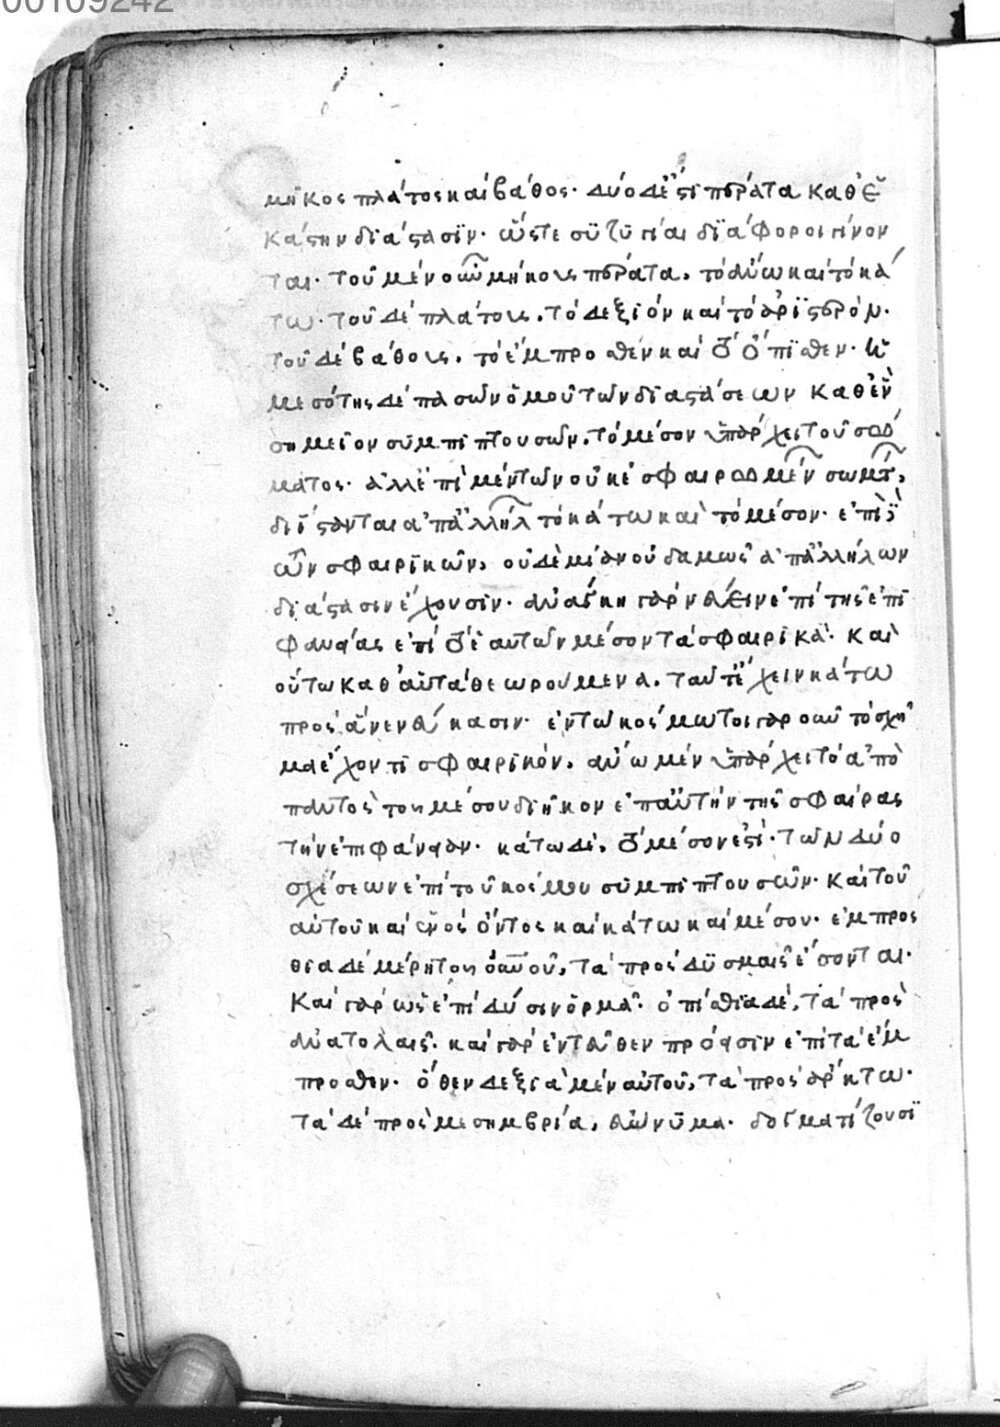 00109242
μῆκος πλάτος καὶ βάθος· δύο δέ ἐστι πέρατα καθ' ἑ
κάστην διάστασιν· ὥστε συζυγίαι διάφοροι γίνον
ται· τοῦ μὲν οὖν μήκους πέρατα, τὸ ἄνω καὶ τὸ κά
τω· τοῦ δὲ πλάτους, τὸ δεξιὸν καὶ τὸ ἀριστερόν·
τοῦ δὲ βάθους, τὸ ἔμπροσθεν καὶ τὸ ὄπισθεν· ἡ
μεσότης δὲ πασῶν ὁμοῦ τῶν διαστάσεων καθ' ἓν
σημεῖον συμπιπτουσῶν, τὸ μέσον ὑπάρχει τοῦ σώ
ματος· ἀλλ' ἐπὶ μὲν τῶν οὐκ ἐσφαιρωμένων σωμάτων,
διΐστανται ἀπ' ἀλλήλων τὸ κάτω καὶ τὸ μέσον· ἐπὶ δὲ
τῶν σφαιρικῶν, οὐδεμίαν οὐδαμῶς ἀπ' ἀλλήλων
διάστασιν ἔχουσιν· ἀνάγκη γὰρ νεύειν ἐπὶ τῆς ἐπι
φανείας ἐπὶ τὸ ἑαυτῶν μέσον τὰ σφαιρικά· καὶ
οὕτω καθ' αὑτὰ θεωρούμενα, ταύτῃ ἔχειν κάτω
πρὸς ἃ νενεύκασιν· ἐν τῷ κόσμῳ τοιγαροῦν τὸ σχῆ
μα ἔχοντι σφαιρικόν, ἄνω μὲν ὑπάρχει τὸ ἀπὸ
παντὸς τοῦ μέσου διῆκον ἐπ' αὐτὴν τῆς σφαίρας
τὴν ἐπιφάνειαν· κάτω δὲ, τὸ μέσον ἐστί· τῶν δύο
σχέσεων ἐπὶ τοῦ κόσμου συμπιπτουσῶν· καὶ τοῦ
αὐτοῦ καὶ ἑνὸς ὄντος καὶ κάτω καὶ μέσου· ἐμπρός
θια δὲ μέρη τοῦ οὐρανοῦ, τὰ πρὸς δυσμαῖς ἔσονται·
καὶ γὰρ ὡς ἐπὶ δύσιν ὁρμᾷ· ὀπίσθια δὲ, τὰ πρὸς
ἀνατολαῖς· καὶ γὰρ ἐντεῦθεν πρόεισιν ἐπὶ τὰ ἔμ
προσθεν· ὅθεν δεξιὰ μὲν αὐτοῦ, τὰ πρὸς ἄρκτω·
τὰ δὲ πρὸς μεσημβρία, εὐώνυμα· δογματίζουσι